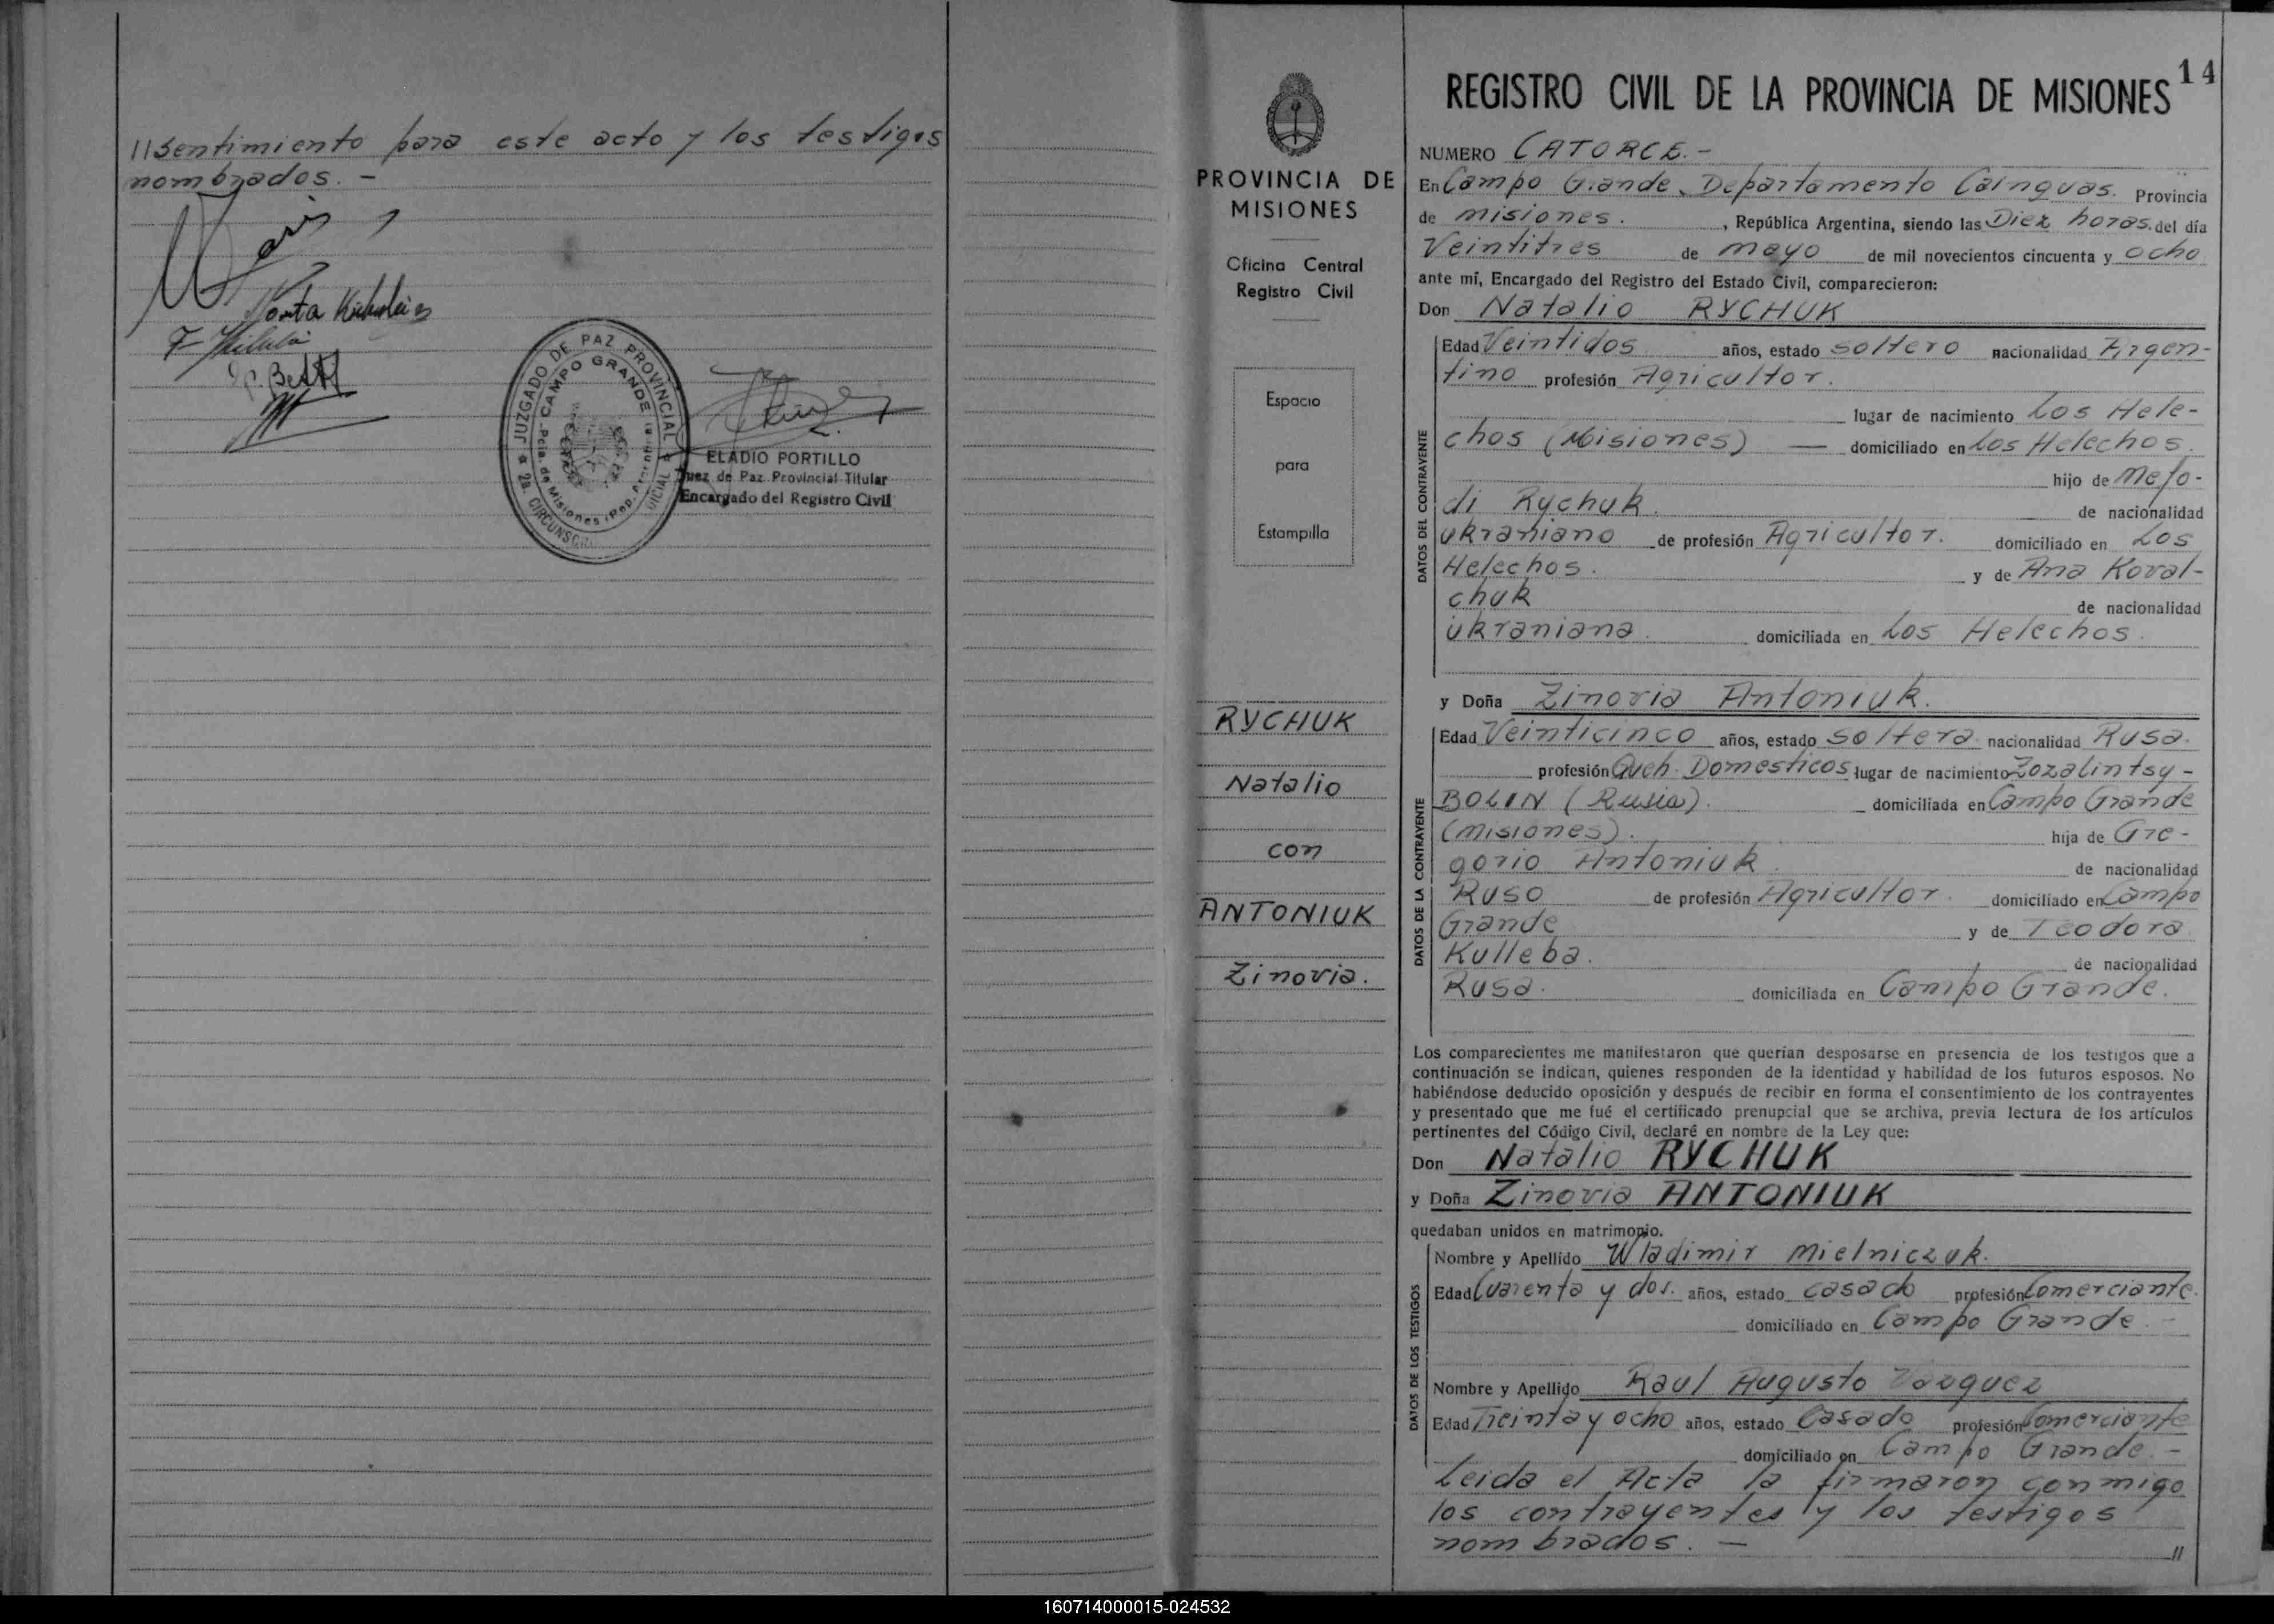 //sentimiento para este acto y los testigos
nombrados. -
F
JUZGADO DE PAZ PROVINCIAL
CAMPO GRANDE
Pcia. de Misiones (Rep. Argentina)
2a. CIRCUNSCR
JUDICIAL
ELADIO PORTILLO
Juez de Paz Provincial Titular
Encargado del Registro Civil
PROVINCIA DE
MISIONES
Oficina Central
Registro Civil
Espacio
para
Estampilla
RYCHUK
Natalio
con
ANTONIUK
Zinovia.
14
REGISTRO CIVIL DE LA PROVINCIA DE MISIONES
NUMERO CATORCE.-
En Campo Grande, Departamento Cainguas. Provincia
de misiones. , República Argentina, siendo las Diez horas. del día
Veintitres de mayo de mil novecientos cincuenta y ocho
ante mí, Encargado del Registro del Estado Civil, comparecieron:
Don Natalio RYCHUK
DATOS DEL CONTRAYENTE
Edad Veintidos años, estado soltero nacionalidad Argen-
tino profesión Agricultor.
lugar de nacimiento Los Hele-
chos (Misiones) — domiciliado en Los Helechos.
hijo de Mefo-
di Rychuk. de nacionalidad
ukraniano de profesión Agricultor. domiciliado en Los
Helechos. y de Ana Koval-
chuk de nacionalidad
ukraniana. domiciliada en Los Helechos.
y Doña Zinovia Antoniuk.
DATOS DE LA CONTRAYENTE
Edad Veinticinco años, estado soltera nacionalidad Rusa.
profesión Queh. Domesticos lugar de nacimiento Zozalintsy-
BOLIN (Rusia). domiciliada en Campo Grande
(misiones). hija de Gre-
gorio Antoniuk. de nacionalidad
Ruso de profesión Agricultor. domiciliado en Campo
Grande y de Teodora
Kulleba. de nacionalidad
Rusa. domiciliada en Campo Grande.
Los comparecientes me manifestaron que querían desposarse en presencia de los testigos que a
continuación se indican, quienes responden de la identidad y habilidad de los futuros esposos. No
habiéndose deducido oposición y después de recibir en forma el consentimiento de los contrayentes
y presentado que me fué el certificado prenupcial que se archiva, previa lectura de los artículos
pertinentes del Código Civil, declaré en nombre de la Ley que:
Don Natalio RYCHUK
y Doña Zinovia ANTONIUK
quedaban unidos en matrimonio.
DATOS DE LOS TESTIGOS
Nombre y Apellido Wladimir Mielniczuk.
Edad Cuarenta y dos. años, estado casado profesión Comerciante.
domiciliado en Campo Grande. -
Nombre y Apellido Raul Augusto Vazquez
Edad Treinta y ocho años, estado Casado profesión Comerciante
domiciliado en Campo Grande. -
Leida el Acta la firmaron conmigo
los contrayentes y los testigos
nombrados. — //
160714000015-024532